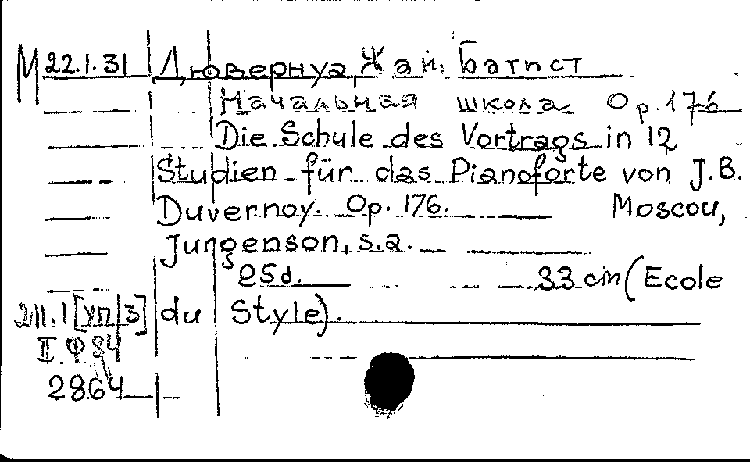 М 22.1.31 Дювернуа, Жан Батист
Начальная школа Op. 176
Die Schule des Vortrags in 12
Studien für das Pianoforte von J.B.
Duvernoy. Op. 176. Moscou,
Jurgenson, s.a.
25d. 33 cm (Ecole
2Л.1[уп/3] du Style).
II.Ф 84
2864